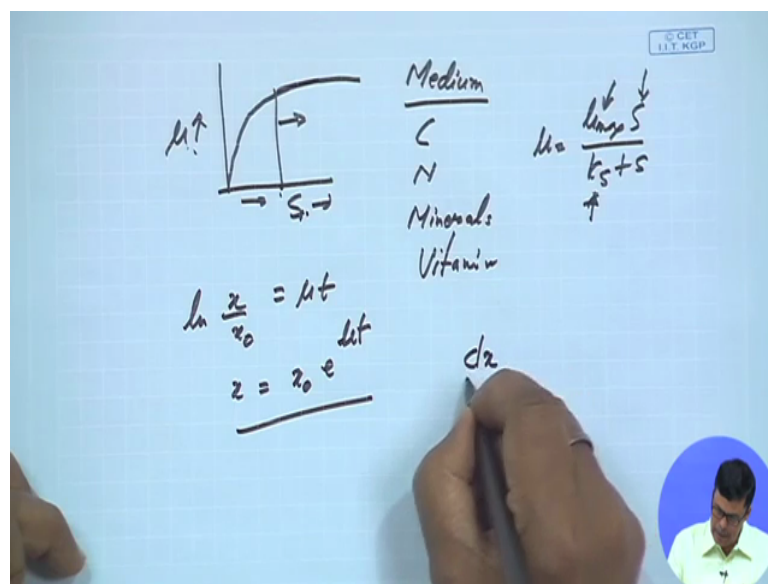 © CET
I.I.T. KGP
μ ↑
S →
Medium
C
N
Minerals
Vitamin
μ = μmax S / Ks + S
ln x/x0 = μt
x = x0 e^μt
dx